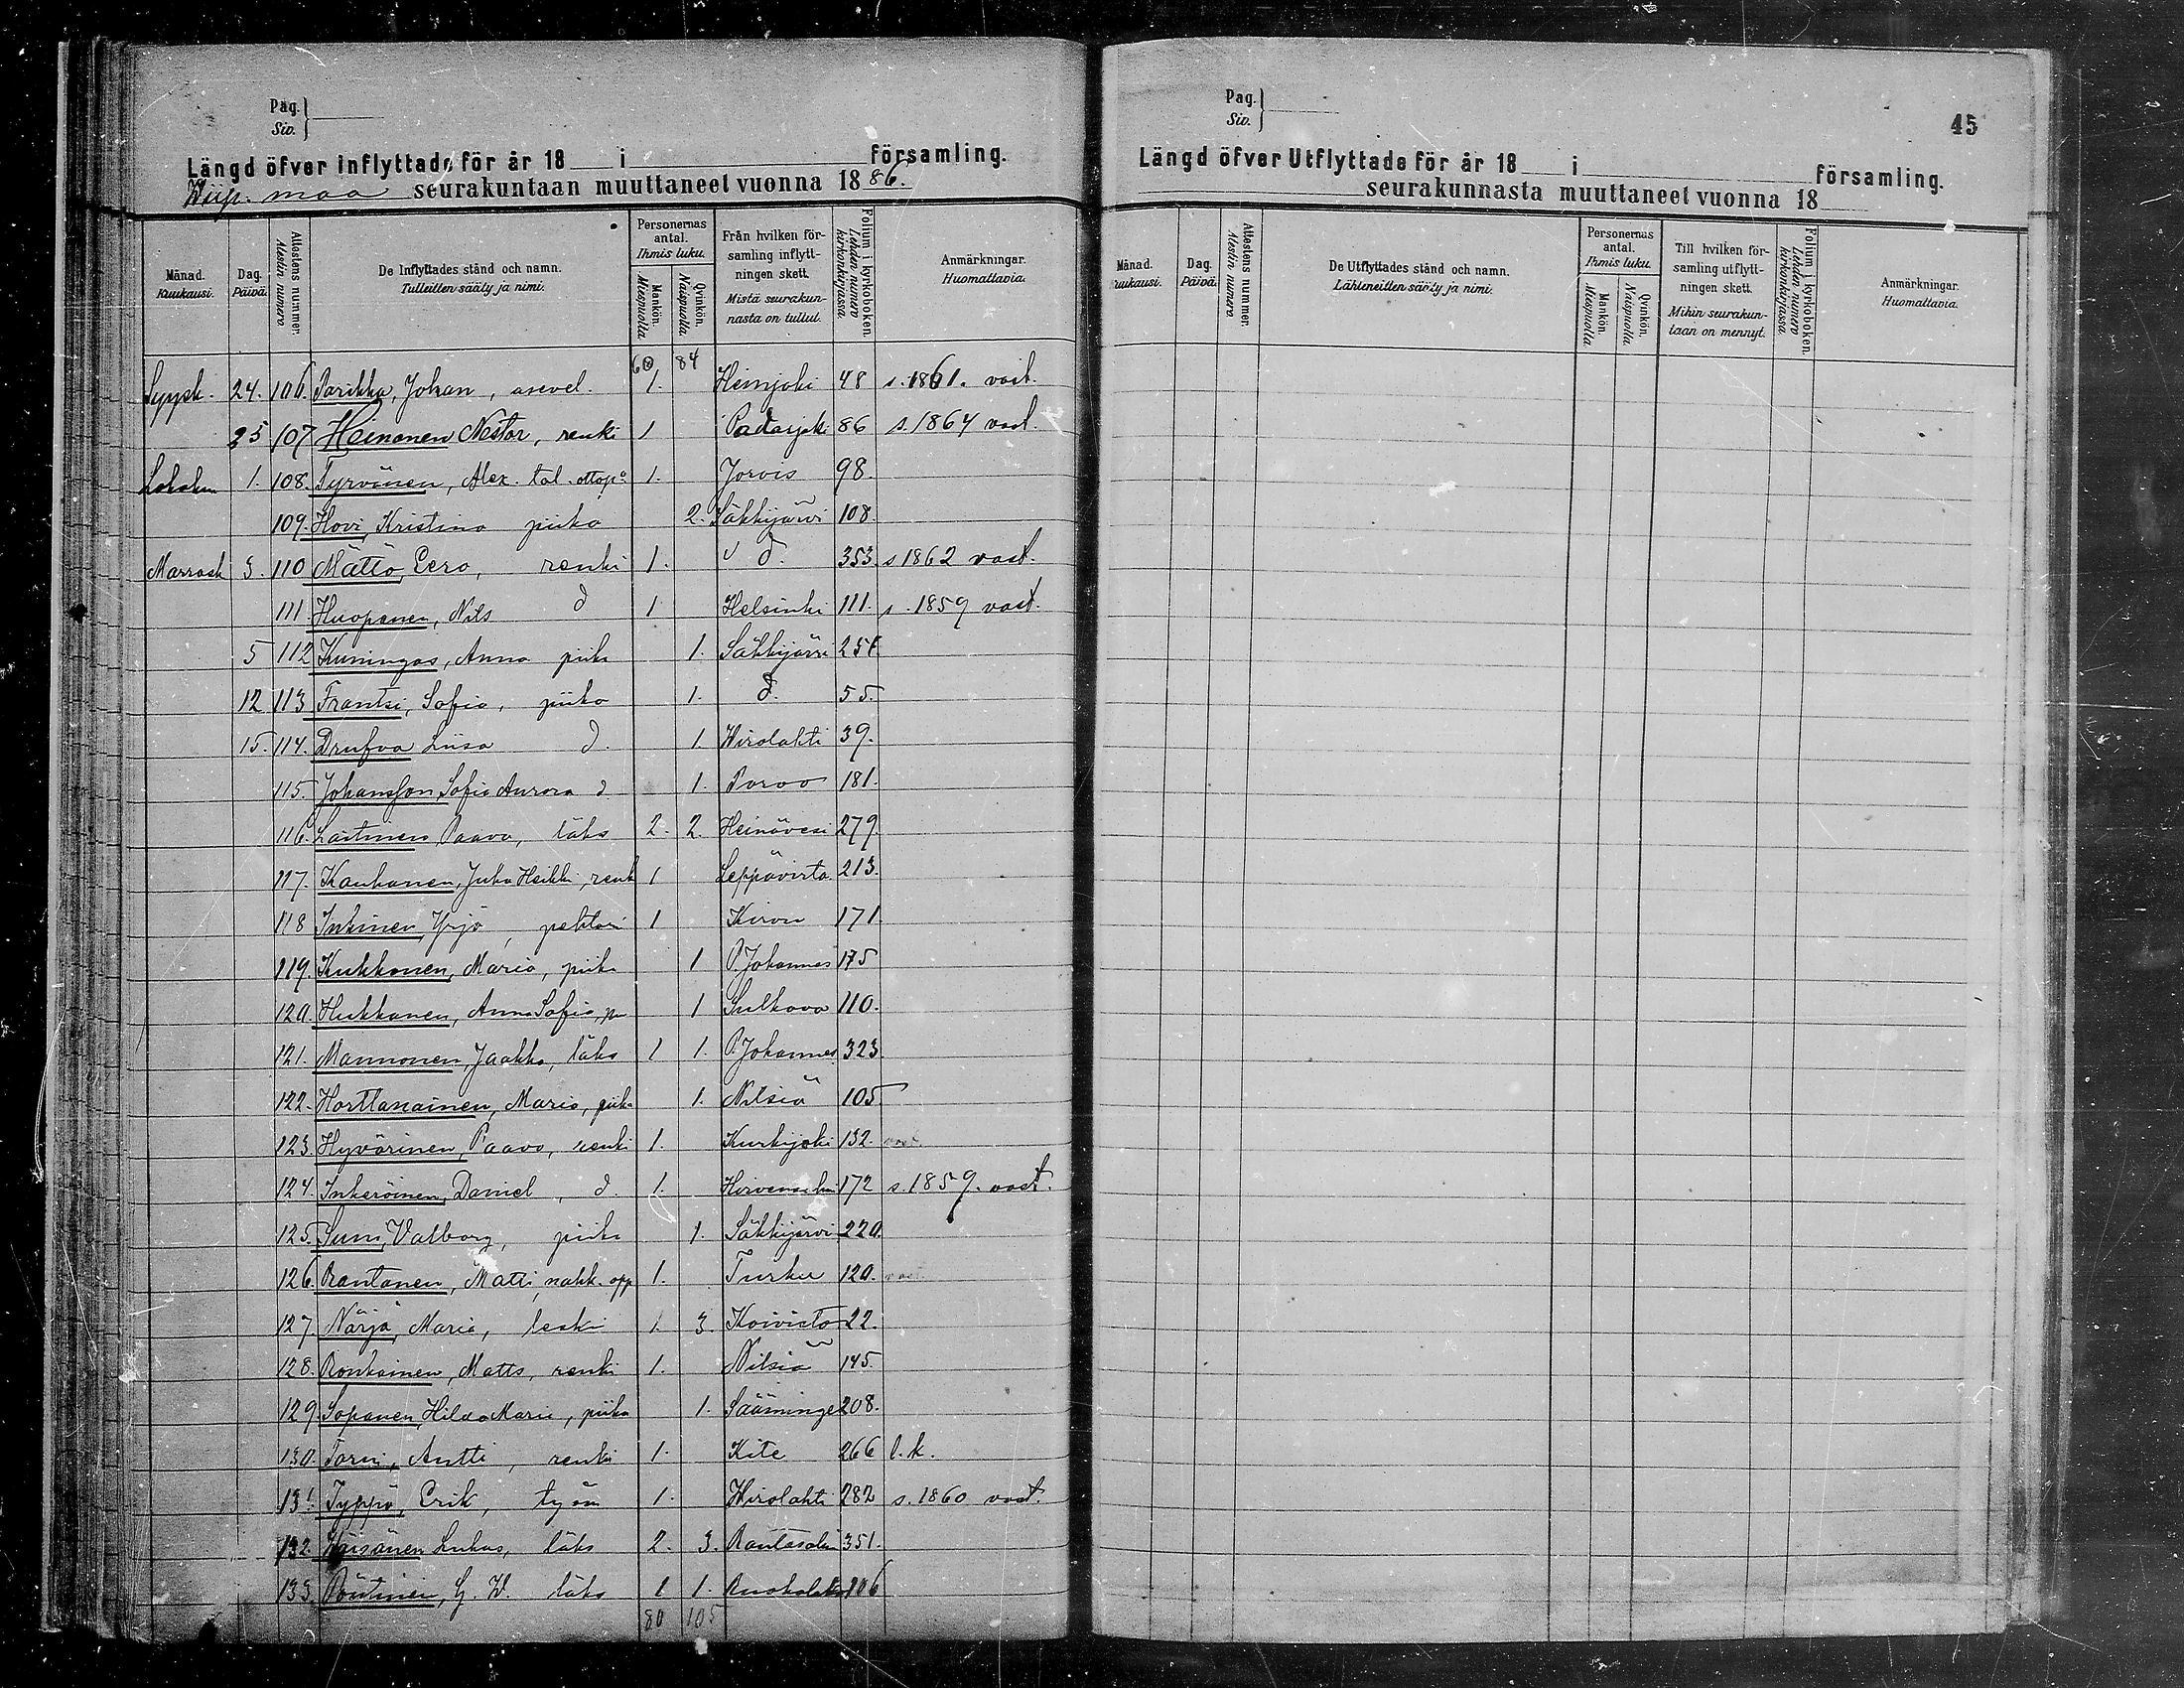 Pag.
Siv.
Längd öfver Inflyttade för år 18 i församling.
Wiip. maa seurakuntaan muuttaneet vuonna 1886.
Månad. Kuukausi.
Dag. Päivä.
Attestens nummer. Atestin numero
De Inflyttades stånd och namn. Tulleitten sääty ja nimi.
Personernas antal. Ihmis luku.
Mankön. Miespuolia
Qvinkön. Naispuolia
Från hvilken församling inflyttningen skett. Mistä seurakunnasta on tullut.
Folium i kyrkoboken. Lehden numero kirkonkirjassa.
Anmärkningar. Huomattavia.
60 84
Syysk. 24. 106. Parikka, Johan, asevel. 1. Heinjoki 48 s. 1861. vast.
25 107 Heinonen Nestor, renki 1 Padasjoki 86 s. 1864 vast.
Lokakuu 1. 108. Tyrväinen, Alex. tal. ottop. 1. Jorois 98.
109. Hovi, Kristina piika 2. Säkkijärvi 108.
Marrask 3. 110 Mättö, Eero, renki 1. d. 353 s 1862 vast.
111 Huopanen, Nils d 1 Helsinki 111. s. 1859 vast.
5 112 Kuningas, Anna piika 1. Säkkijärvi 251.
12 113 Frantsi, Sofia, piika 1. d. 55.
15. 114. Drufva Liisa d. 1. Wirolahti 39.
115. Johansson, Sofia Aurora d 1. Porvoo 181.
116. Laitinen Paavo, läks 2. 2. Heinävesi 279
117. Kauhanen, Juho Heikki, renk 1 Leppävirta. 213.
118 Inkinen, Yrjö, pehtori 1 Kirvu 171.
119. Kukkonen, Maria, piika 1 P. Johannes 175
120. Hukkanen, Anna Sofia, pii 1 Sulkava 110.
121. Mannonen, Jaakko, läks 1 1. P. Johannes 323.
122. Horttanainen, Maria, piika 1. Nilsiä 105
123. Hyvärinen, Paavo, renki 1. Kurkijoki 132. vast.
124. Inkeröinen, Daniel, d. 1. Hirvensalmi 172 s. 1859. vast.
125. Suni, Valborg, piika 1. Säkkijärvi 220.
126. Rantanen, Matti, nahk. opp 1. Turku 120. vast.
127. Närjä, Maria, leski 1. 3. Koivisto 22.
128. Ronkainen, Matts, renki 1. Nilsiä 145.
129. Sopanen, Hilda Maria, piika 1. Sääminge 208.
130. Torvi, Antti, renki 1. Kite 266 l.k.
131. Typpö, Erik, työm 1. Wirolahti 282 s. 1860 vast.
132. Väisänen Lukas, läks 2. 3. Rantasalmi 351.
133. Pöntinen, G. W. läks 1 1. Ruskolaks 106
80 105
Pag.
Siv.
45
Längd öfver Utflyttade för år 18 i församling.
seurakunnasta muuttaneet vuonna 18
Månad. Kuukausi.
Dag. Päivä.
Attestens nummer. Atestin numero
De Utflyttades stånd och namn. Lähteneitten sääty ja nimi.
Personernas antal. Ihmis luku.
Mankön. Miespuolia
Qvinkön. Naispuolia
Till hvilken församling utflyttningen skett. Mihin seurakuntaan on mennyt.
Folium i kyrkoboken. Lehden numero kirkonkirjassa
Anmärkningar. Huomattavia.